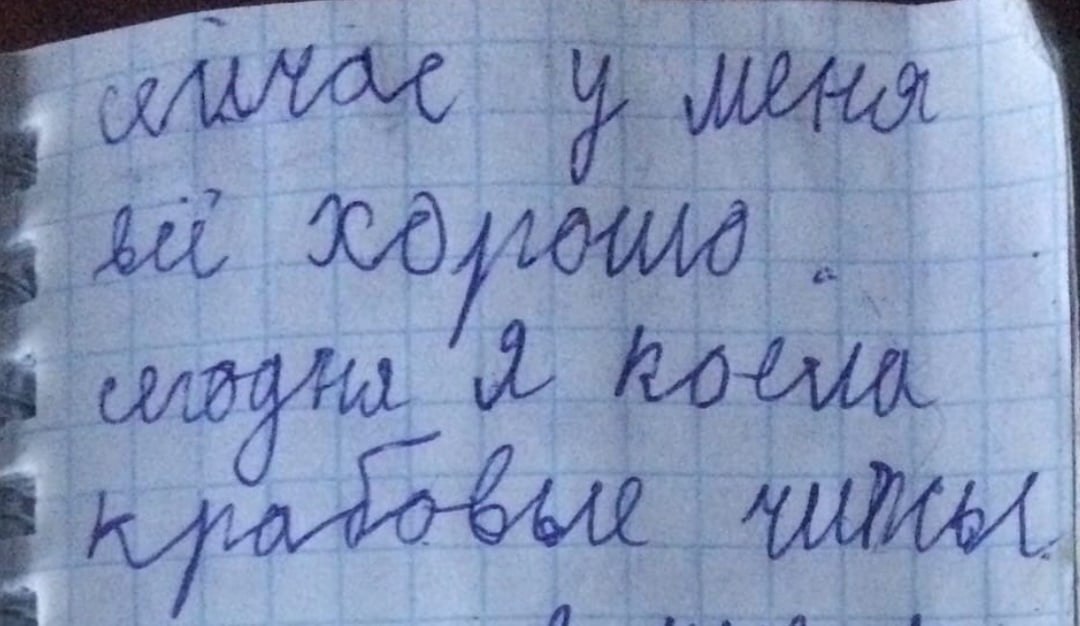 сейчас у меня
всё хорошо.
сегодня я коела
крабовые чипсы